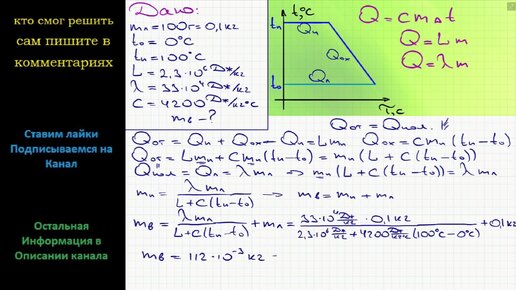 кто смог решить
сам пишите в
комментариях
Ставим лайки
Подписываемся на
Канал
Остальная
Информация в
Описании канала
Дано:
mл=100г=0,1кг
t₀=0°С
tп=100°С
L=2,3·10⁶ Дж/кг
λ=33·10⁴ Дж/кг
С=4200 Дж/кг°С
mв-?
t,°С
tп
Qп
Qох
t₀
Qл
τ,с
Q=cmΔt
Q=Lm
Q=λm
Qот=Qпол.
Qот=Qп+Qох Qп=Lmп Qох=Cmп(tп-t₀)
Qот=Lmп+Cmп(tп-t₀)=mп(L+C(tп-t₀))
Qпол=Qл=λmл → mп(L+C(tп-t₀))=λmл
mп=λmл/L+C(tп-t₀) → mв=mп+mл
mв=λmл/L+C(tп-t₀)+mл=33·10⁴ Дж/кг·0,1кг/2,3·10⁶ Дж/кг+4200 Дж/кг°С(100°С-0°С)+0,1кг
mв=112·10⁻³кг